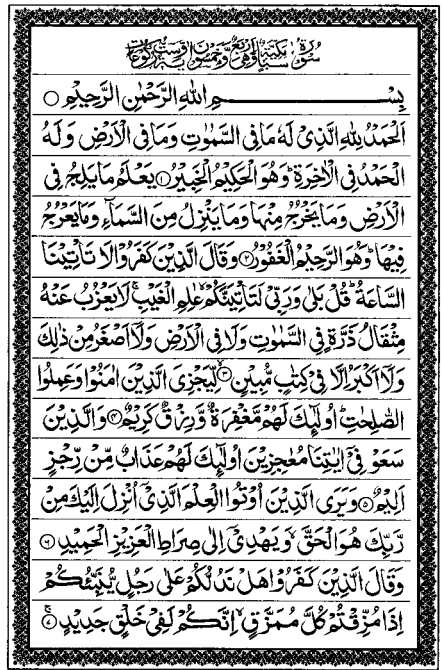 سُوْرَةُ سَبَاٍ مَكِّيَّةٌ وَّهِيَ اَرْبَعٌ وَّخَمْسُوْنَ اٰيَةً وَّسِتُّ رُكُوْعَاتٍ
بِسْمِ اللّٰهِ الرَّحْمٰنِ الرَّحِيْمِ ○
اَلْحَمْدُ لِلّٰهِ الَّذِىْ لَهٗ مَا فِى السَّمٰوٰتِ وَمَا فِى الْاَرْضِ وَلَهُ
الْحَمْدُ فِى الْاٰخِرَةِ ؕ وَهُوَ الْحَكِيْمُ الْخَبِيْرُ ﴿۱﴾ يَعْلَمُ مَا يَلِجُ فِى
الْاَرْضِ وَمَا يَخْرُجُ مِنْهَا وَمَا يَنْزِلُ مِنَ السَّمَآءِ وَمَا يَعْرُجُ
فِيْهَا ؕ وَهُوَ الرَّحِيْمُ الْغَفُوْرُ ﴿۲﴾ وَقَالَ الَّذِيْنَ كَفَرُوْا لَا تَاْتِيْنَا
السَّاعَةُ ؕ قُلْ بَلٰى وَرَبِّىْ لَتَاْتِيَنَّكُمْ ۙ عٰلِمِ الْغَيْبِ ۚ لَا يَعْزُبُ عَنْهُ
مِثْقَالُ ذَرَّةٍ فِى السَّمٰوٰتِ وَلَا فِى الْاَرْضِ وَلَآ اَصْغَرُ مِنْ ذٰلِكَ
وَلَآ اَكْبَرُ اِلَّا فِىْ كِتٰبٍ مُّبِيْنٍ ﴿۳﴾ لِّيَجْزِىَ الَّذِيْنَ اٰمَنُوْا وَعَمِلُوا
الصّٰلِحٰتِ ؕ اُولٰٓئِكَ لَهُمْ مَّغْفِرَةٌ وَّرِزْقٌ كَرِيْمٌ ﴿۴﴾ وَالَّذِيْنَ
سَعَوْ فِىْٓ اٰيٰتِنَا مُعٰجِزِيْنَ اُولٰٓئِكَ لَهُمْ عَذَابٌ مِّنْ رِّجْزٍ
اَلِيْمٌ ﴿۵﴾ وَيَرَى الَّذِيْنَ اُوْتُوا الْعِلْمَ الَّذِىْٓ اُنْزِلَ اِلَيْكَ مِنْ
رَّبِّكَ هُوَ الْحَقَّ ۙ وَيَهْدِىْٓ اِلٰى صِرَاطِ الْعَزِيْزِ الْحَمِيْدِ ﴿۶﴾
وَقَالَ الَّذِيْنَ كَفَرُوْا هَلْ نَدُلُّكُمْ عَلٰى رَجُلٍ يُّنَبِّئُكُمْ
اِذَا مُزِّقْتُمْ كُلَّ مُمَزَّقٍ ۙ اِنَّكُمْ لَفِىْ خَلْقٍ جَدِيْدٍ ﴿۷﴾